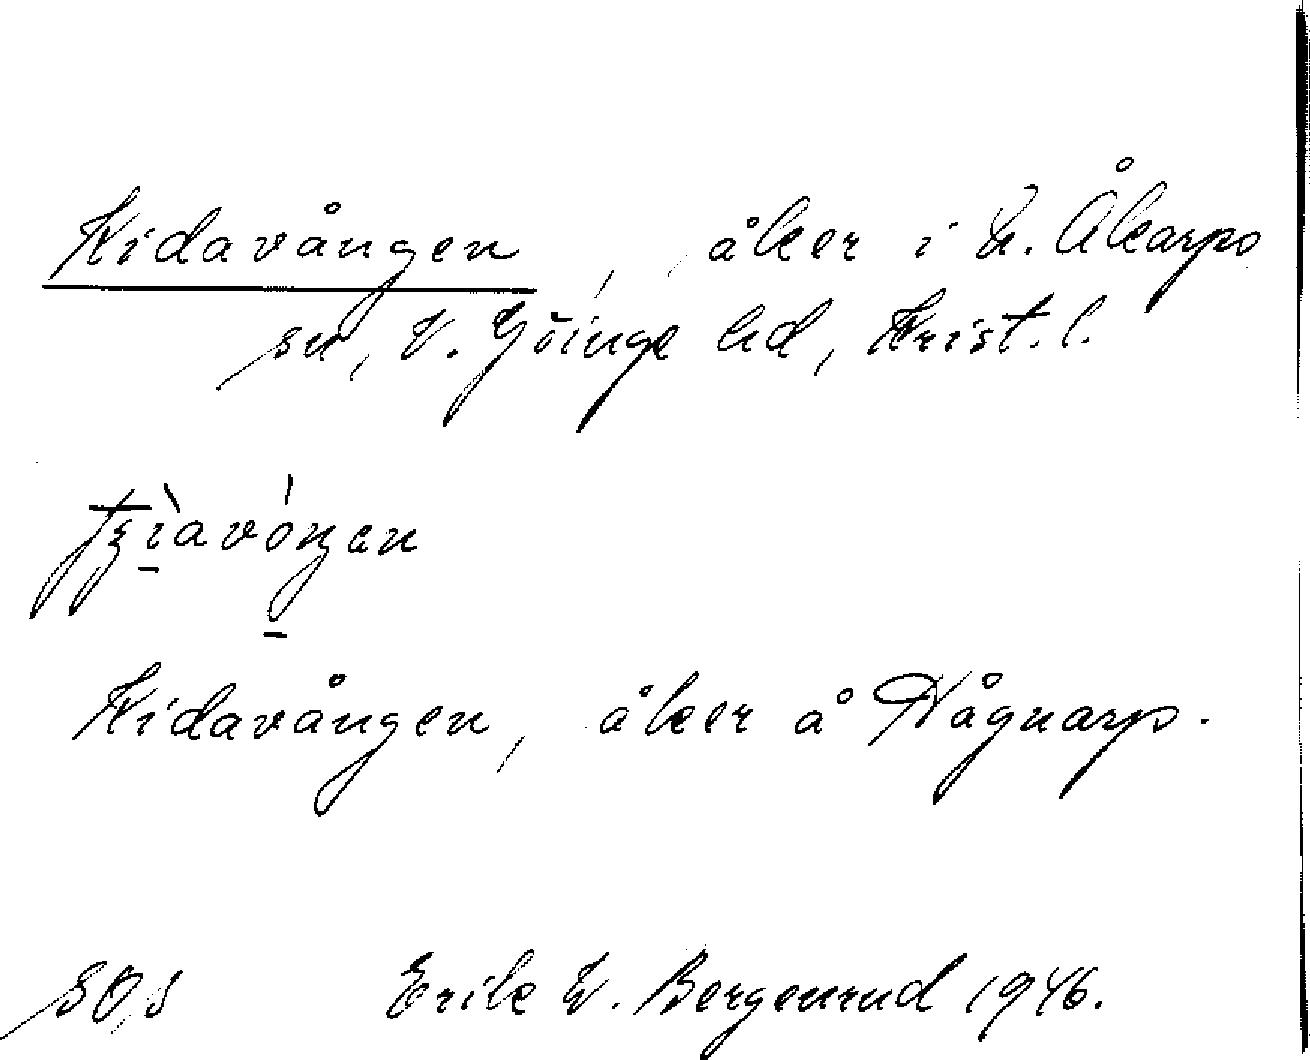 Kidavången, åker i N. Åkarps
sn, V. Göinge hd, Krist. l.
Kidavången, åker å Någnarp.
SOS Erik W. Bergenrud 1946.